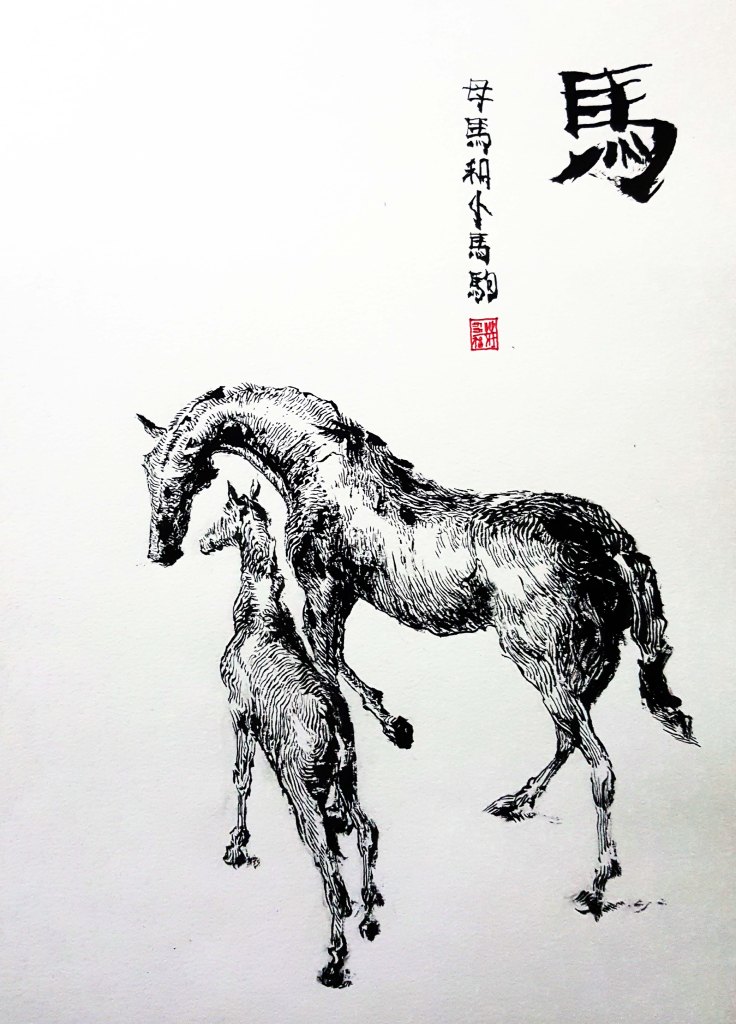 馬
母馬和小馬駒